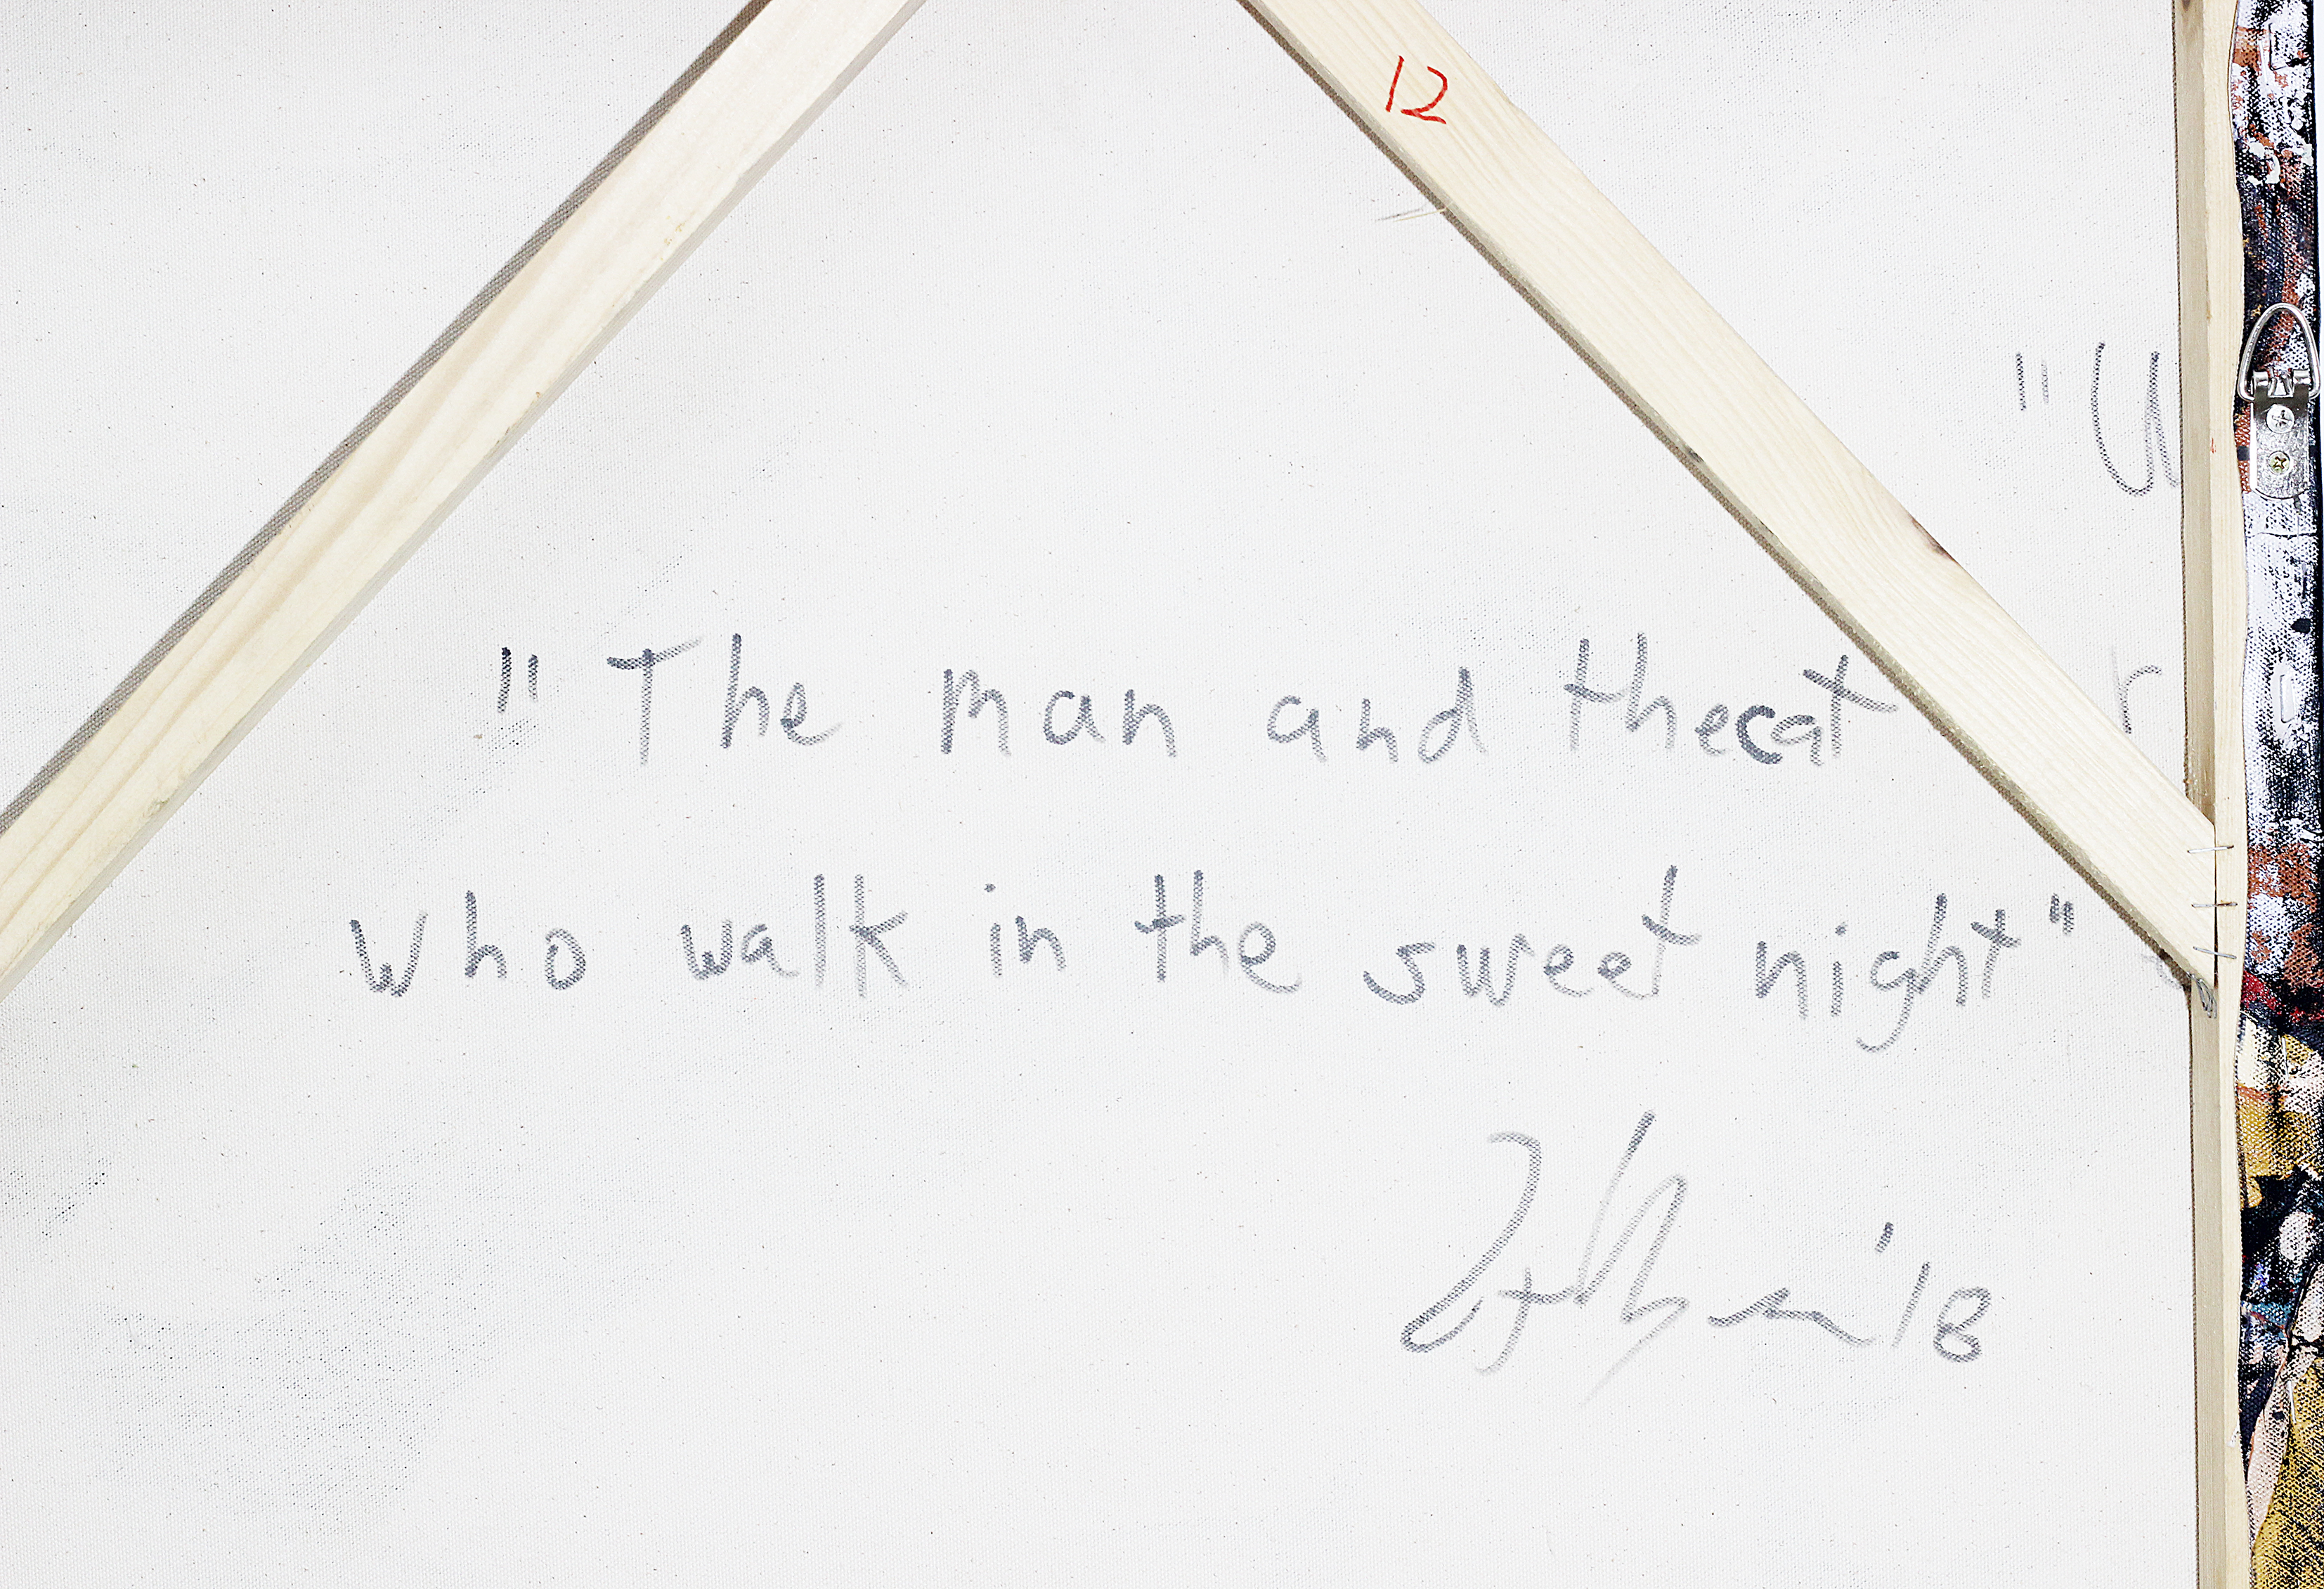 12
"U
r
"The man and thecat
who walk in the sweet night"
'18